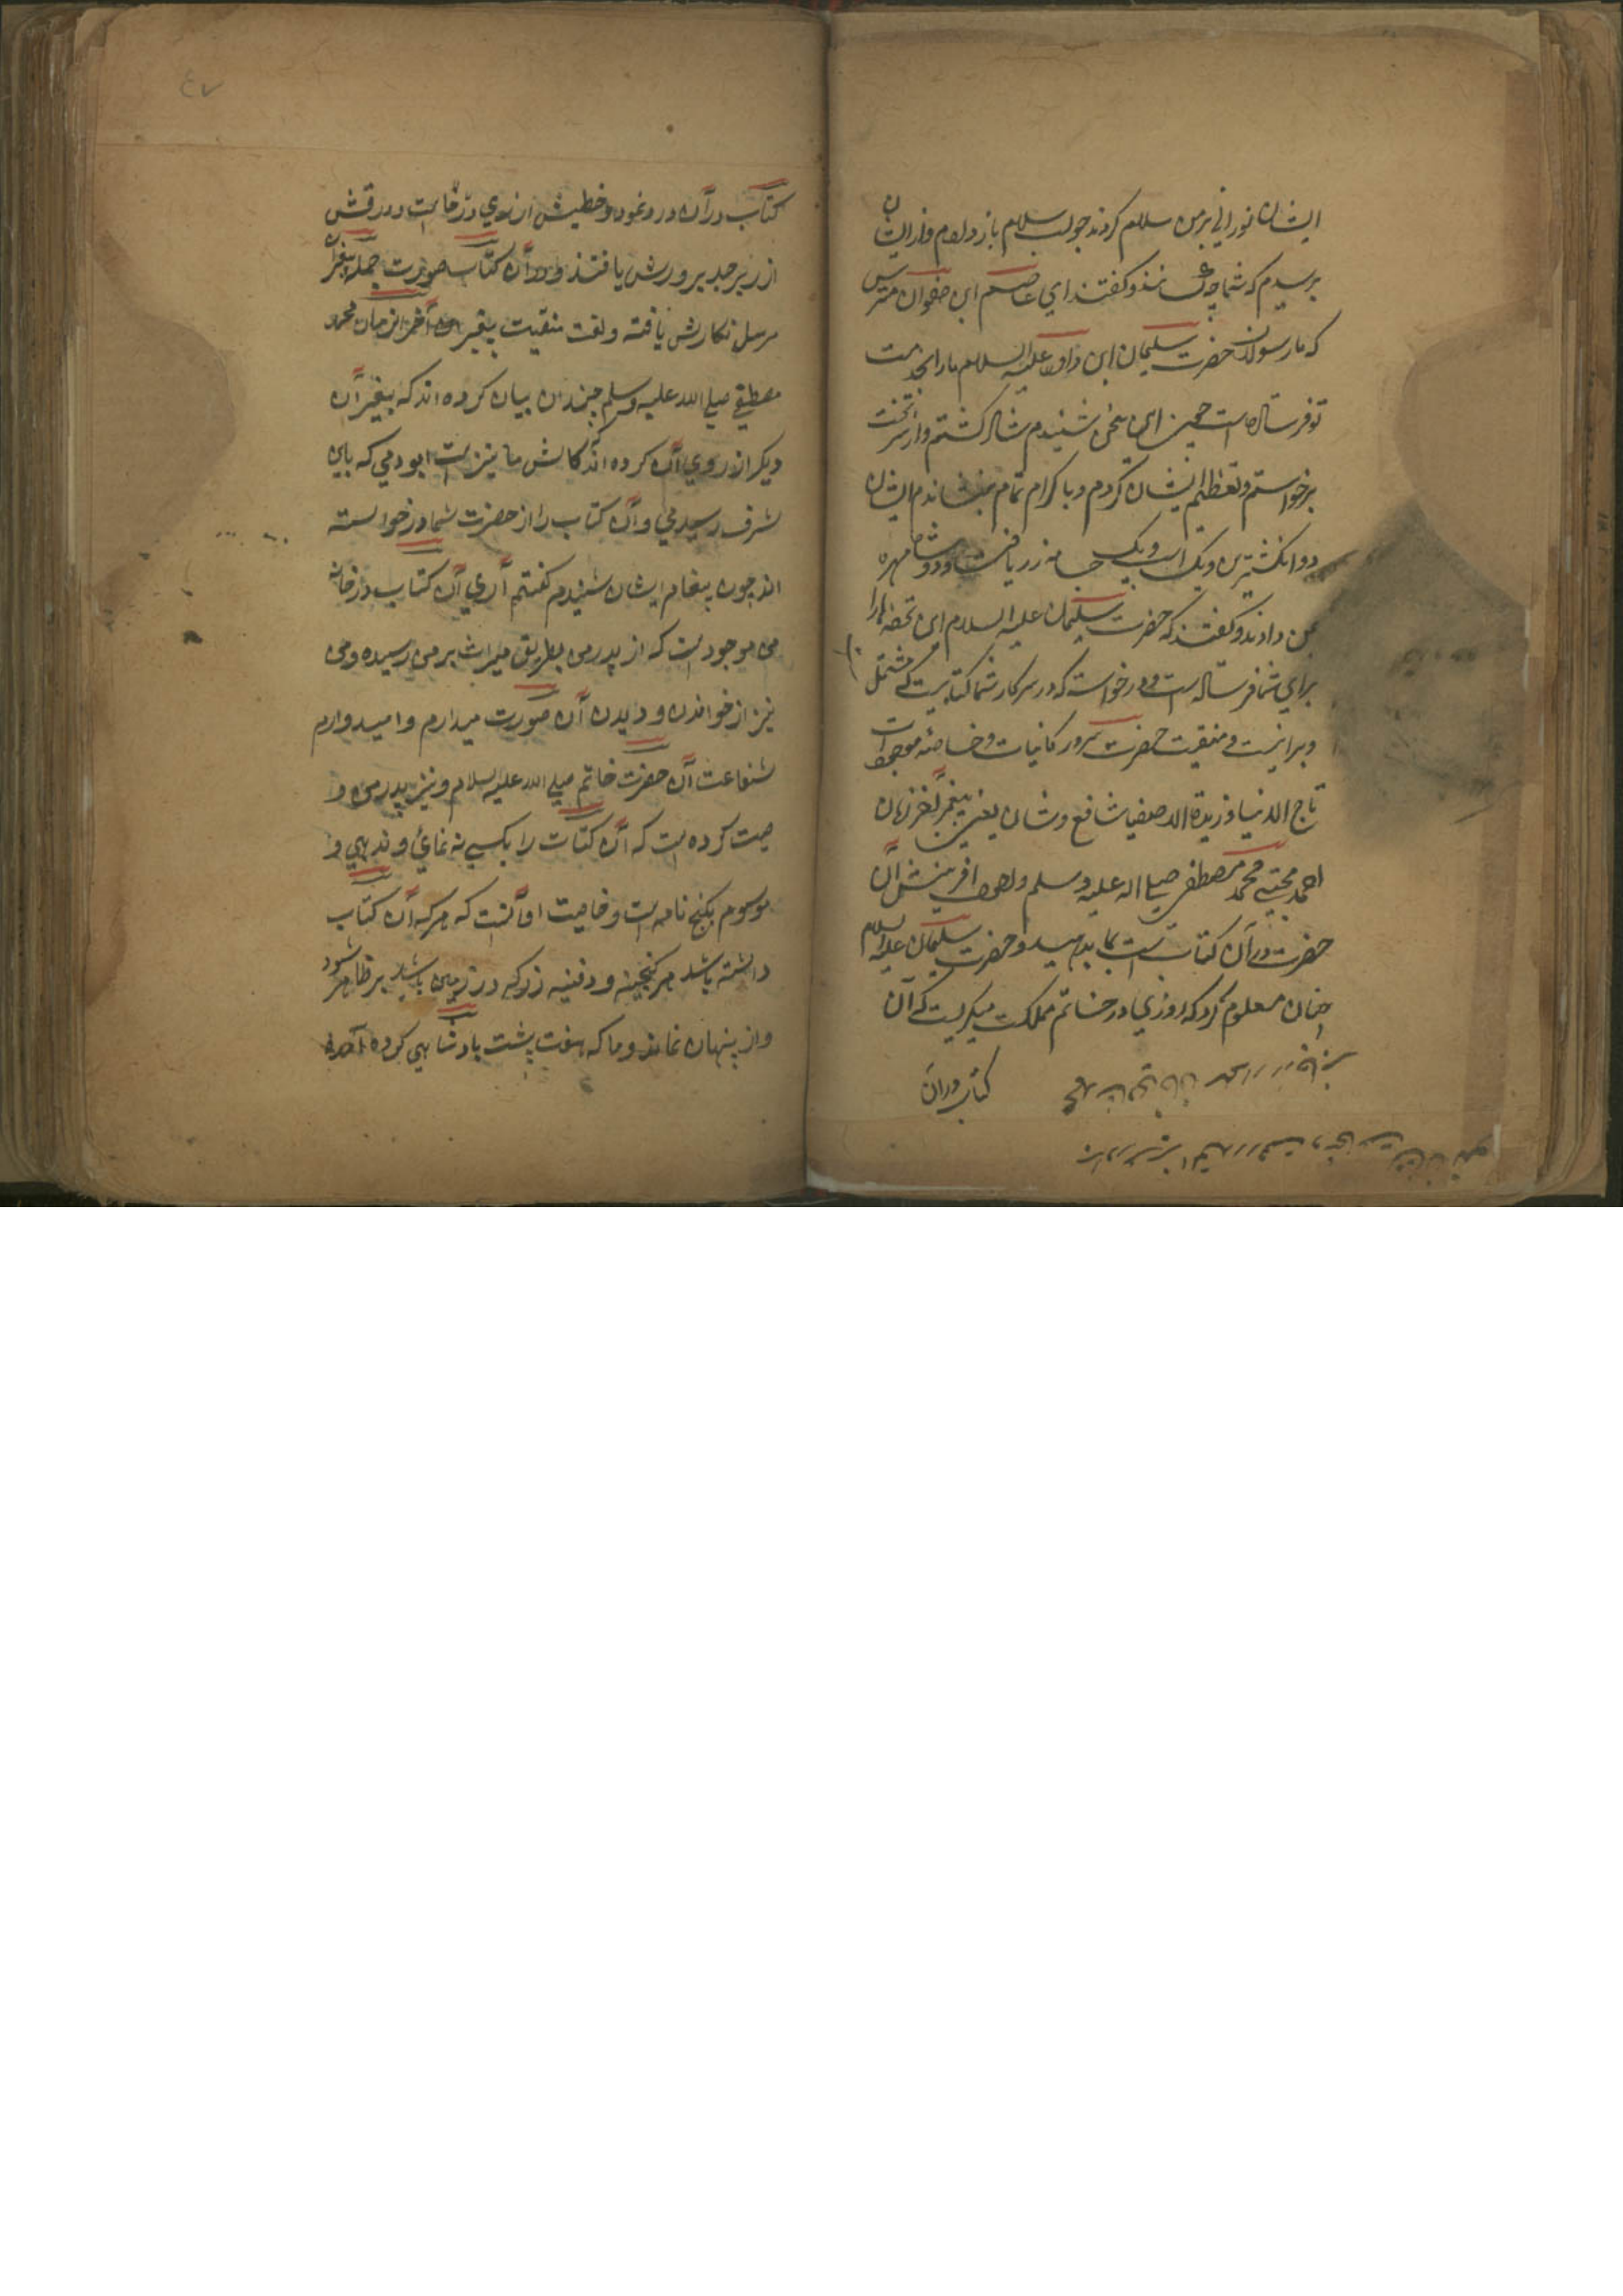 ایشان نورانی بر من سلام کردند جواب سلام باز دادم و از ایشان
پرسیدم که شما چه کسانند و گفتند ای عاصم ابن صفوان مترس
که ما رسولان حضرت سلیمان ابن داود علیه السلام ما را بخدمت
تو فرستاده است چون این سخن شنیدم شاد گشتم و از سر تخت
برخواستم و تعظیم ایشان کردم و باکرام تمام بنشاندم ایشان
دو انکشترین و یک اسپ و یک جامه زربافت و دو شاه مهره
بمن دادند و گفتند که حضرت سلیمان علیه السلام این تحفه ها را
برای شما فرستاده است و درخواسته که در سرکار شما کتابیست که مشتمل
و بر نعت و منقبت حضرت سرور کاینات و خلاصه موجودات
تاج الدنیا و زبدة الاصفیا شافع یعنی پیغمبر آخر زمان
احمد مجتبی محمد مصطفی صلی الله علیه وسلم و احوال افرینش آن
حضرت در آن کتاب است بما بدهید و حضرت سلیمان علیه السلام
چنان معلوم کرد که روزی در خاتم مملکت میگریست که آن
کتاب در آن
٤٧
کتاب در آن در نمود و خطیش از روی درخاست و ورقش
از زبرجد پرورش یافتند و در آن کتاب صورت جمله پیغمبران
مرسل نکارش یافته و نعت منقبت پیغمبر آخر الزمان محمد
مصطفی صلی الله علیه وسلم چندان بیان کرده اند که پیغمبران
دیگر از روی آن کرده اند کاش ما نیز امت او بودمی که باین
شرف رسیدمی و آن کتاب را از حضرت شما درخواسته
اند چون پیغام ایشان شنیدم گفتم آری آن کتاب در خانه
من موجود است که از پدر من بطریق میراث بر من رسیده و من
نیز از خواندن و دیدن آن صورت میدارم و امیدوارم
شفاعت آن حضرت خاتم صلی الله علیه السلام و نیز پدر من و
صیت کرده است که آن کتاب را بکسے نه نمائی و ندهی و
موسوم بکنج نامه است و خاصیت او آنست که هرکه آن کتاب
داشته باشد هر گنجینه و دفینه زر که در زمین باشد بر ظاهر شود
و از پنهان نماند و ما که هفت پشت بادشاهی کرده آمده